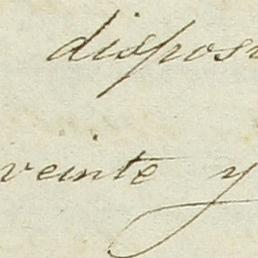 dispos
veinte y